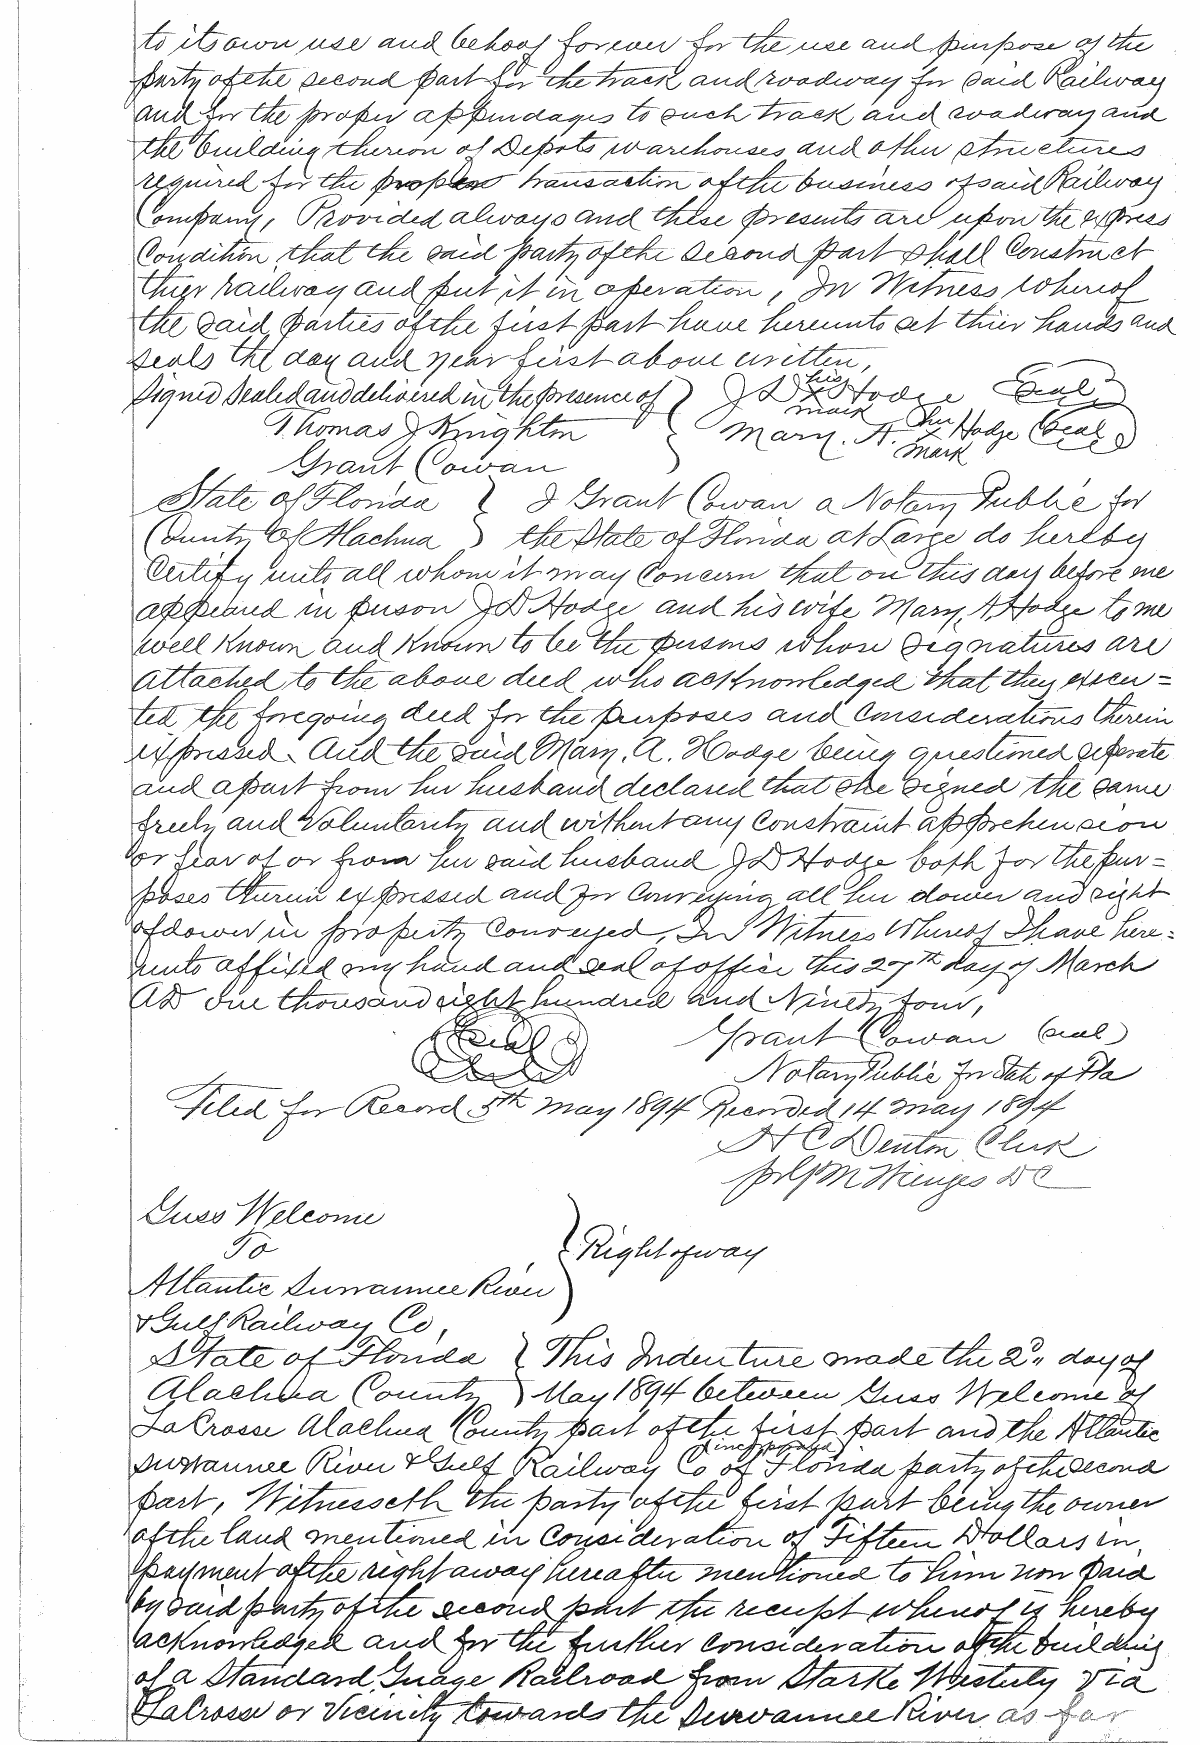 to its own use and behoof forever for the use and purpose of the
party of the second part for the track and roadway for said Railway
and for the proper appendages to such track and roadway and
the building thereon of Depots warehouses and other structures
required for the proper transaction of the business of said Railway
Company, Provided always and these presents are upon the express
Condition that the said party of the second part shall Construct
thier railway and put it in operation, In Witness whereof
the said parties of the first part have hereunto set thier hands and
seals the day and year first above written,
Signed Sealed and delivered in the presence of } J D his x mark Hodge (Seal)
Thomas J Knighton } Mary. A. her x mark Hodge (Seal)
Grant Cowan
State of Florida } I Grant Cowan a Notary Public for
County of Alachua } the State of Florida at Large do hereby
Certify unto all whom it may Concern that on this day before me
appeared in person J D Hodge and his wife Mary, A Hodge to me
well Known and Known to be the persons whose signatures are
attached to the above deed who acknowledged that they execu=
ted the foregoing deed for the purposes and Considerations therein
expressed. And the said Mary. A. Hodge being questioned seperate
and apart from her husband declared that she signed the same
freely and Voluntarily and without any Constraint apprehension
or fear of or from her said husband J D Hodge both for the pur=
poses therein expressed and for Conveying all her dower and right
of dower in property Conveyed, In Witness Whereof I have here=
unto affixed my hand and seal of office this 27th day of March
AD one thousand eight hundred and Ninety four,
(Seal) Grant Cowan (seal)
Notary Public for State of Fla
Filed for Record 5th May 1894 Recorded 14 May 1894
H C Denton Clerk
M Wienges DC
Guss Welcome
To } Right of way
Atlantic Suwannee River
& Gulf Railway Co,
State of Florida } This Indenture made the 2d day of
Alachua County } May 1894 between Guss Welcome of
LaCrosse Alachua County part of the first part and the Atlantic
Suwannee River & Gulf Railway Co (incorporated) of Florida party of the second
part, Witnesseth the party of the first part being the owner
of the land mentioned in Consideration of Fifteen Dollars in
payment of the right away hereafter mentioned to him now paid
by said party of the second part the receipt whereof is hereby
acknowledged and for the further Consideration of the building
of a Standard Guage Railroad from Starke Westerly Via
LaCrosse or Vicinity towards the Suwannee River as far